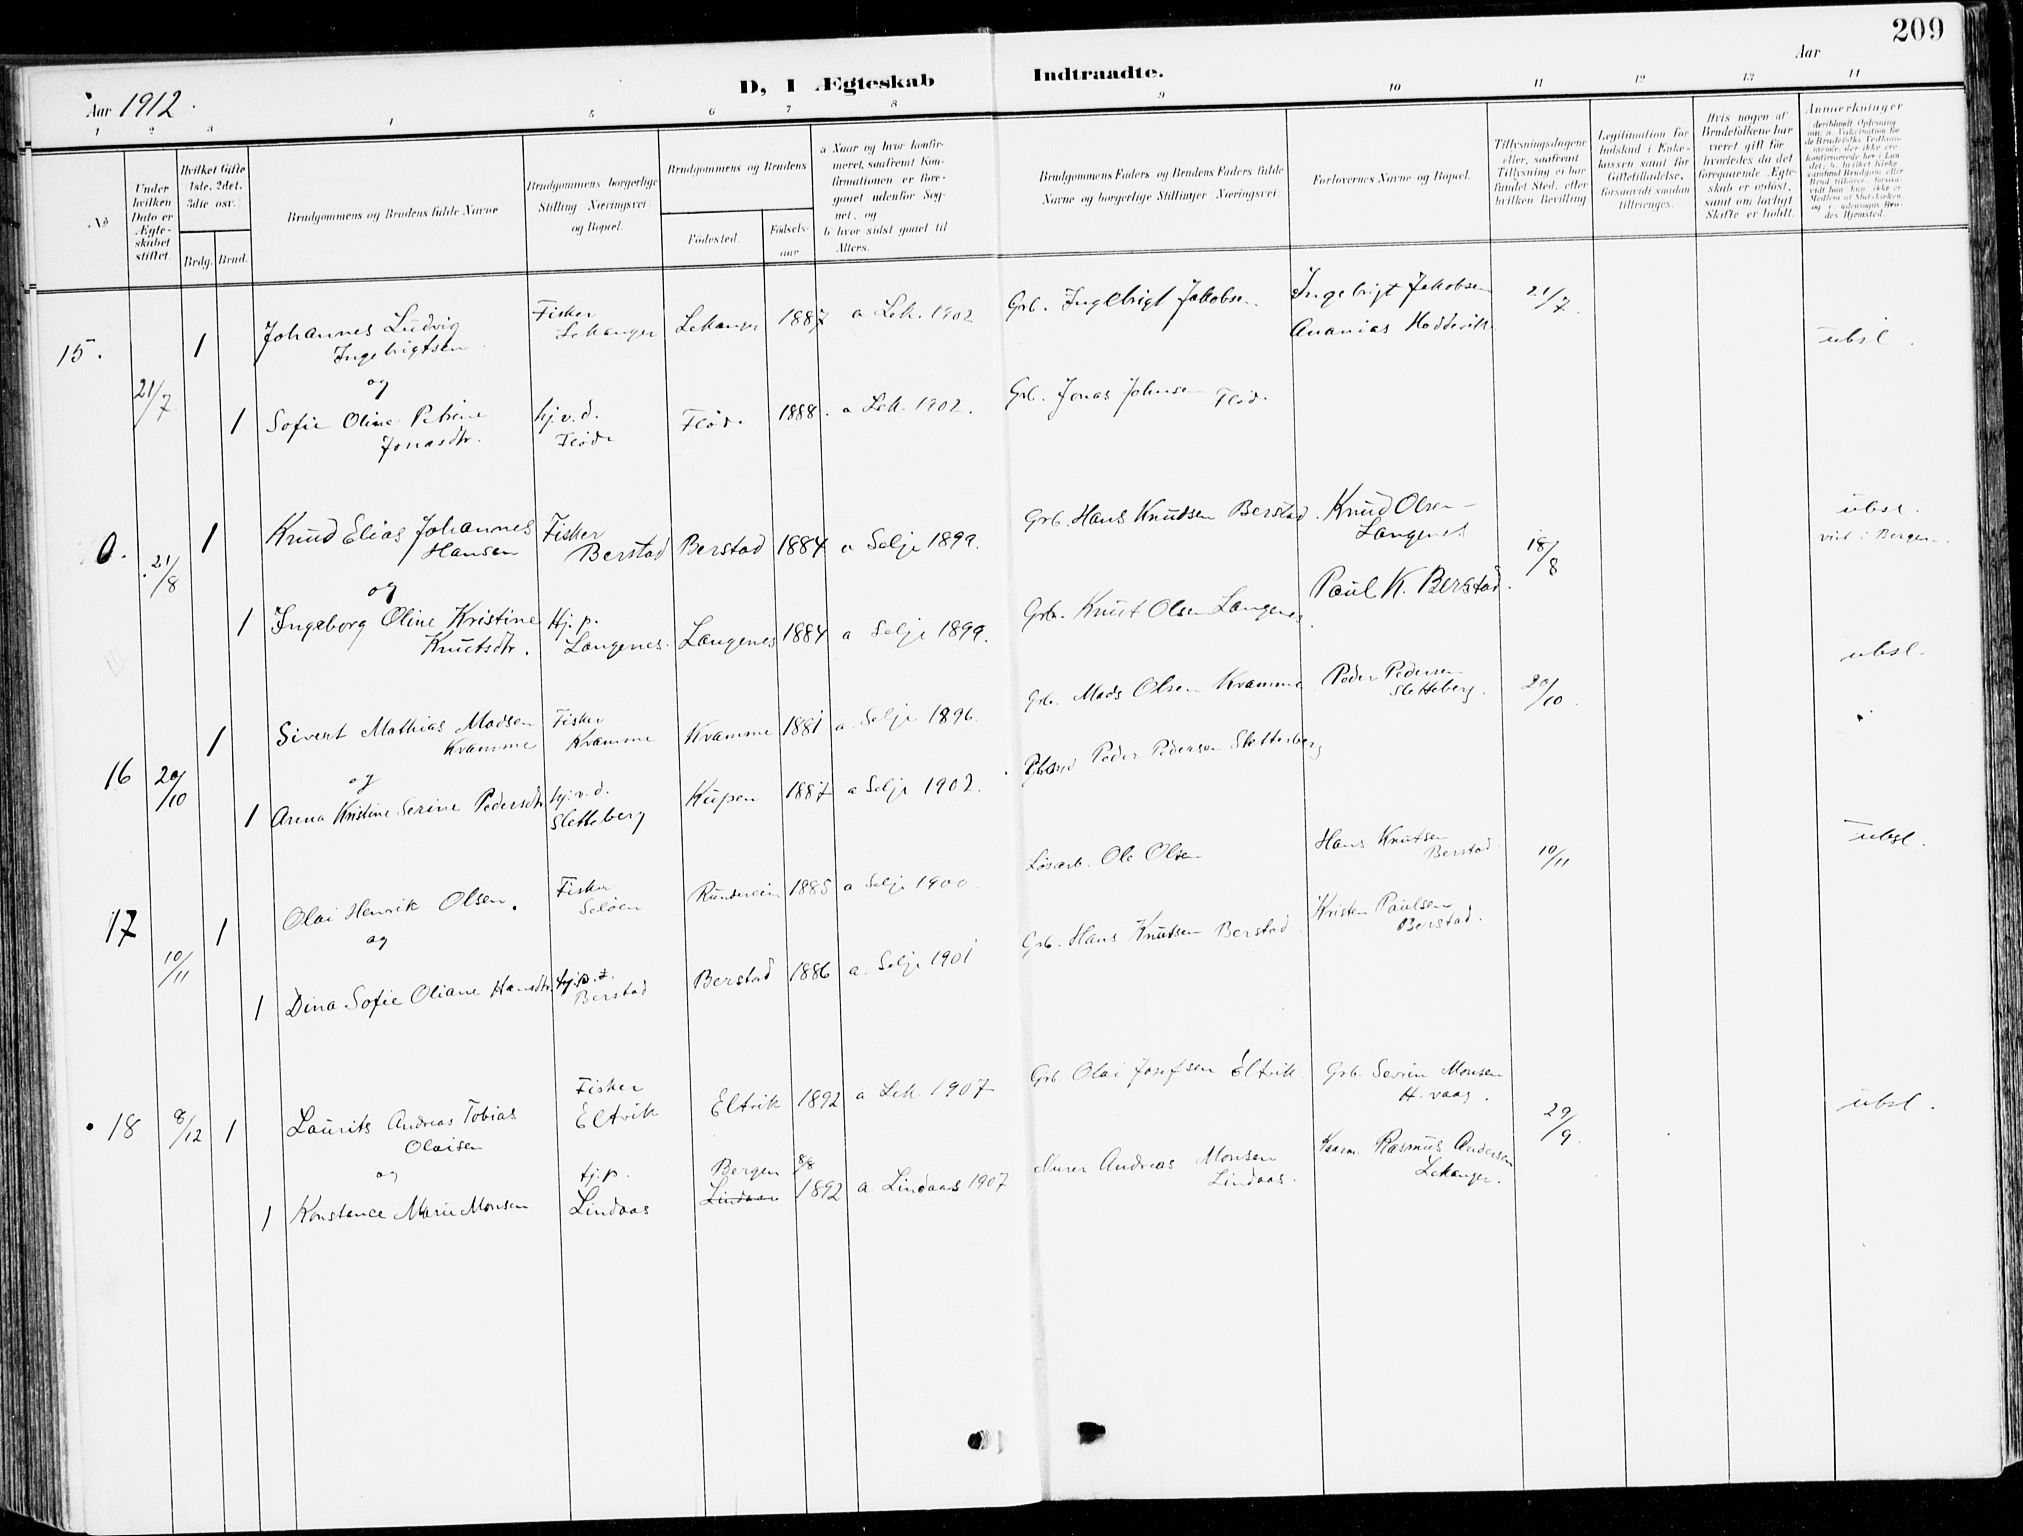 209
D, I Ægteskab Indtraadte.
Aar 1912.
Aar
1 2 3 4 5 6 7 8 9 10 11 12 13 14
No
Under hvilken Dato er Ægteskabet stiftet.
Hvilket Gifte 1ste, 2det, 3die osv.
Brdg. Brud.
Brudgommens og Brudens fulde Navne
Brudgommens borgerlige Stilling Næringsvei og Bopæl.
Brudgommens og Brudens
Födested.
Födselsaar
a Naar og hvor konfirmeret, saafremt Konfirmationen er foregaaet udenfor Sognet, og
b. hvor sidst gaaet til Alters.
Brudgommens Faders og Brudens Faders fulde Navne og borgerlige Stillinger Næringsvei.
Forlovernes Navne og Bopæl.
Tillysningsdagene eller, saafremt Tillysning ei har fundet Sted, efter hvilken Bevilling
Legitimation for Indskud i Enkekassen samt for Giftetilladelse, forsaavidt saadan tiltrænges.
Hvis nogen af Brudefolkene har været gift för hvorledes da det foregaaende Ægteskab er opløst, samt om lovligt Skifte er holdt.
Anmærkninger
15. 21/7 1 Johannes Ludvig Ingebrigtsen Fisker Lekanger Lekanger 1887 a Lek. 1902 Grb. Ingebrigt Jakobsen. Ingebrigt Jakobsen Ananias Hoddevik 21/7 ubsl.
og
1 Sofie Oline Petrine Jonasdtr. hj.v.d. Fløde Fløde 1888. a Lek. 1902. Grb. Jonas Johnsen Fløde
0. 21/8 1 Knud Elias Johannes Hansen Fisker Berstad Berstad 1884 a Selje 1899. Grb. Hans Knudsen Berstad. Knud Olsen Langenes 18/8 ubsl. viet i Bergen.
og
1 Ingeborg Oline Kristine Knutsdtr. Hj.p. Langenes. Langenes 1884 a Selje 1899. Grb. Knut Olsen Langenes. Paul K. Berstad.
16 20/10 1 Sivert Mathias Madsen Kramme Fisker Kramme Kramme 1881 a. Selje 1896. Grb. Mads Olsen Kramme Peder Pedersen Sletteberg. 20/10. ubsl.
og
1 Arena Kristine Serine Pedersdtr hj.v.d. Sletteberg Kupen 1887 a Selje 1902. Peder Pedersen Sletteberg
17 10/11 1 Olai Henrik Olsen. Fisker Seløen 1885 a Selje 1900. Løsarb. Ole Olsen Hans Knutsen Berstad. 10/11 ubsl.
og
1 Dina Sofie Oliane Hansdtr. Berstad Berstad 1886 a. Selje 1901 Grb. Hans Knutsen Berstad. Kristen Paulsen Berstad.
18 8/12 1 Laurits Andreas Tobias Olaisen Fisker Eltvik Eltvik 1892 a Lek 1907 Grb. Olai Josefsen Eltvik. Grb. Severin Monsen H. vaag. 29/9. ubsl.
og
1 Konstance Marie Monsen tj.p. Lindaas Bergen Lindaas 8/8 1892 a. Lindaas 1907 Murer Andreas Monsen Lindaas. Rasmus Andersen Lekanger.